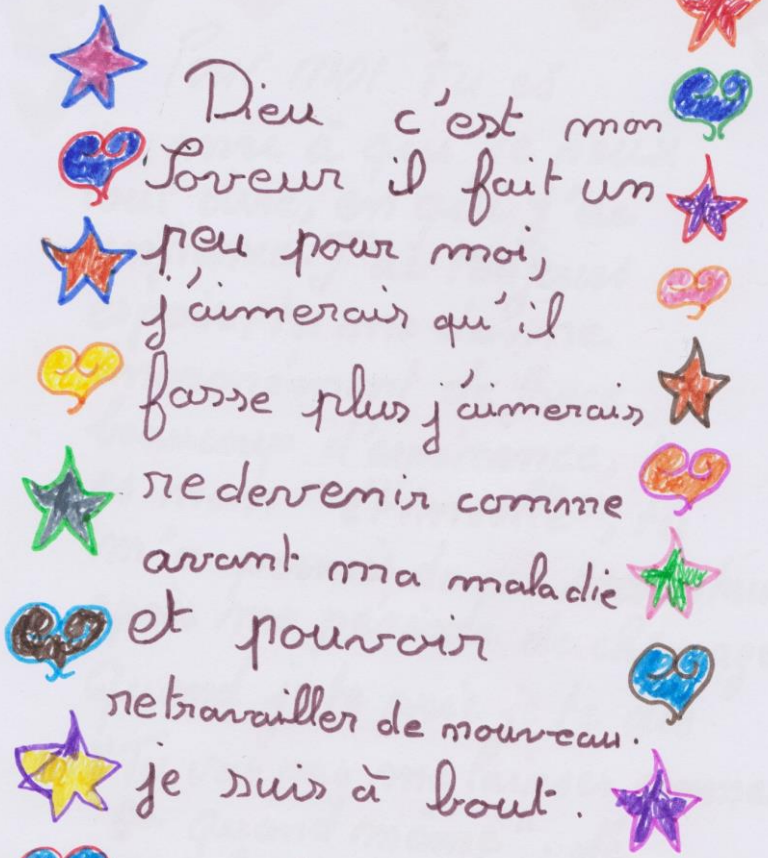 Dieu c'est mon
Soveur il fait un
peu pour moi,
j'aimerais qu'il
fasse plus j'aimerais
redevenir comme
avant ma maladie
et pouvoir
retravailler de nouveau.
je suis à bout.